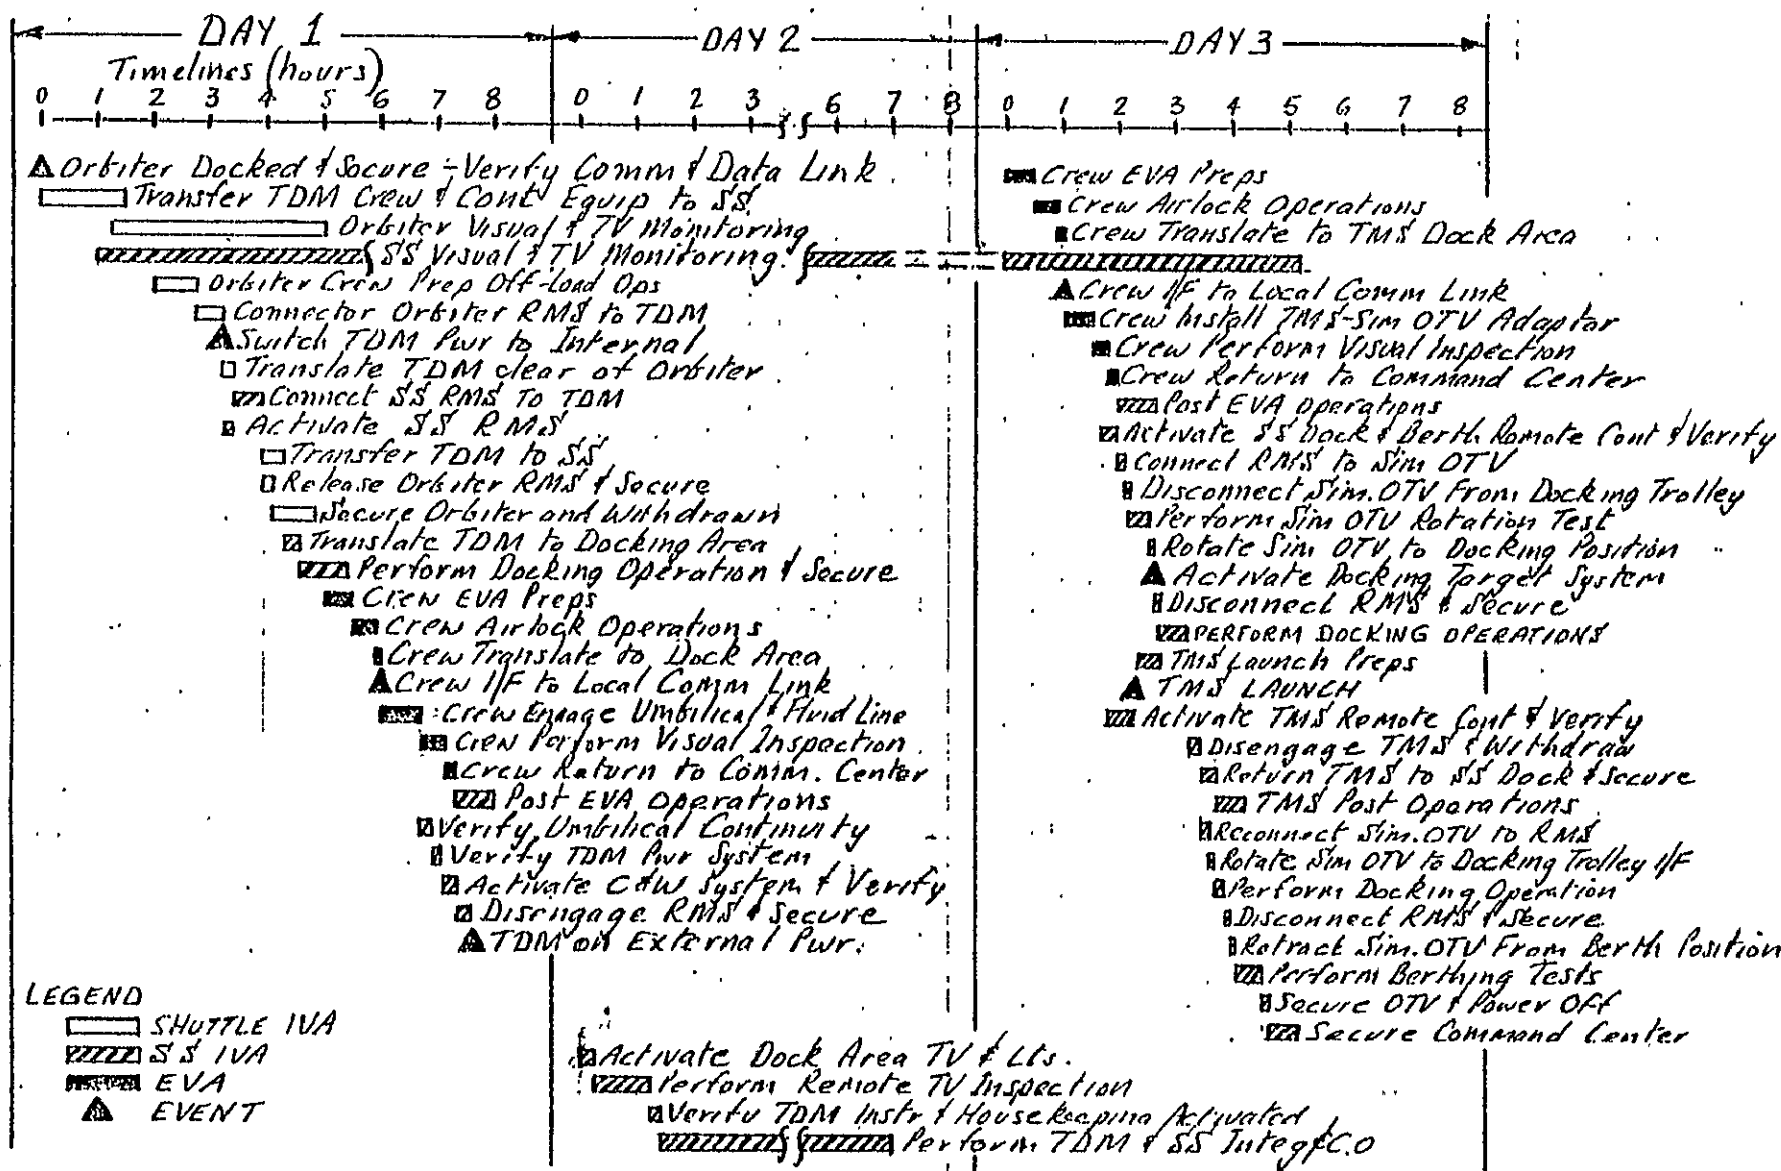 DAY 1 DAY 2 DAY 3
Timelines (hours)
0 1 2 3 4 5 6 7 8 0 1 2 3 6 7 8 0 1 2 3 4 5 6 7 8
Orbiter Docked & Secure - Verify Comm & Data Link
Transfer TDM Crew & Cont Equip to SS
Orbiter Visual & TV Monitoring
SS Visual & TV Monitoring
Orbiter Crew Prep Off-Load Ops
Connector Orbiter RMS to TDM
Switch TDM Pwr to Internal
Translate TDM clear of Orbiter
Connect SS RMS To TDM
Activate SS RMS
Transfer TDM to SS
Release Orbiter RMS & Secure
Secure Orbiter and Withdrawn
Translate TDM to Docking Area
Perform Docking Operation & Secure
Crew EVA Preps
Crew Airlock Operations
Crew Translate to Dock Area
Crew I/F to Local Comm Link
Crew Engage Umbilical & Fluid Line
Crew Perform Visual Inspection
Crew Return to Comm. Center
Post EVA Operations
Verify Umbilical Continuity
Verify TDM Pwr System
Activate C&W System & Verify
Disengage RMS & Secure
TDM on External Pwr.
Activate Dock Area TV & Lts.
Perform Remote TV Inspection
Verify TDM Instr & Housekeeping Activated
Perform TDM & SS Integ & C.O
Crew EVA Preps
Crew Airlock Operations
Crew Translate to TMS Dock Area
Crew I/F to Local Comm Link
Crew Install TMS-Sim OTV Adaptor
Crew Perform Visual Inspection
Crew Return to Command Center
Post EVA Operations
Activate SS Dock & Berth Remote Cont & Verify
Connect RMS to Sim OTV
Disconnect Sim. OTV From Docking Trolley
Perform Sim OTV Rotation Test
Rotate Sim OTV to Docking Position
Activate Docking Target System
Disconnect RMS & Secure
PERFORM DOCKING OPERATIONS
TMS Launch Preps
TMS LAUNCH
Activate TMS Remote Cont & Verify
Disengage TMS & Withdraw
Return TMS to SS Dock & Secure
TMS Post Operations
Reconnect Sim. OTV to RMS
Rotate Sim OTV to Docking Trolley I/F
Perform Docking Operation
Disconnect RMS & Secure
Retract Sim. OTV From Berth Position
Perform Berthing Tests
Secure OTV & Power Off
Secure Command Center
LEGEND
SHUTTLE IVA
SS IVA
EVA
EVENT